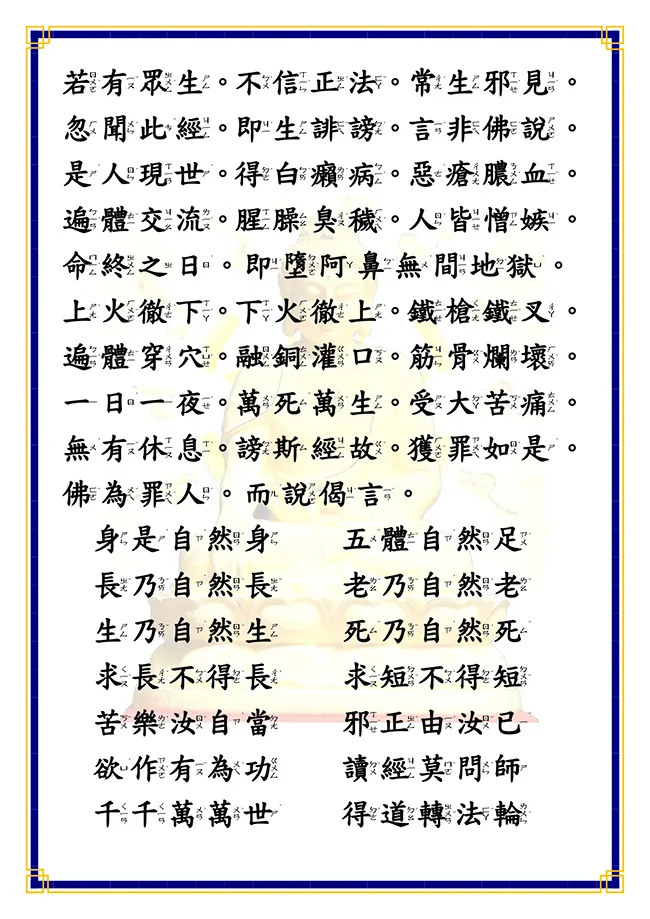 若有眾生。不信正法。常生邪見。
忽聞此經。即生誹謗。言非佛說。
是人現世。得白癩病。惡瘡膿血。
遍體交流。腥臊臭穢。人皆憎嫉。
命終之日。即墮阿鼻無間地獄。
上火徹下。下火徹上。鐵槍鐵叉。
遍體穿穴。融銅灌口。筋骨爛壞。
一日一夜。萬死萬生。受大苦痛。
無有休息。謗斯經故。獲罪如是。
佛為罪人。而說偈言。
身是自然身 五體自然足
長乃自然長 老乃自然老
生乃自然生 死乃自然死
求長不得長 求短不得短
苦樂汝自當 邪正由汝已
欲作有為功 讀經莫問師
千千萬萬世 得道轉法輪